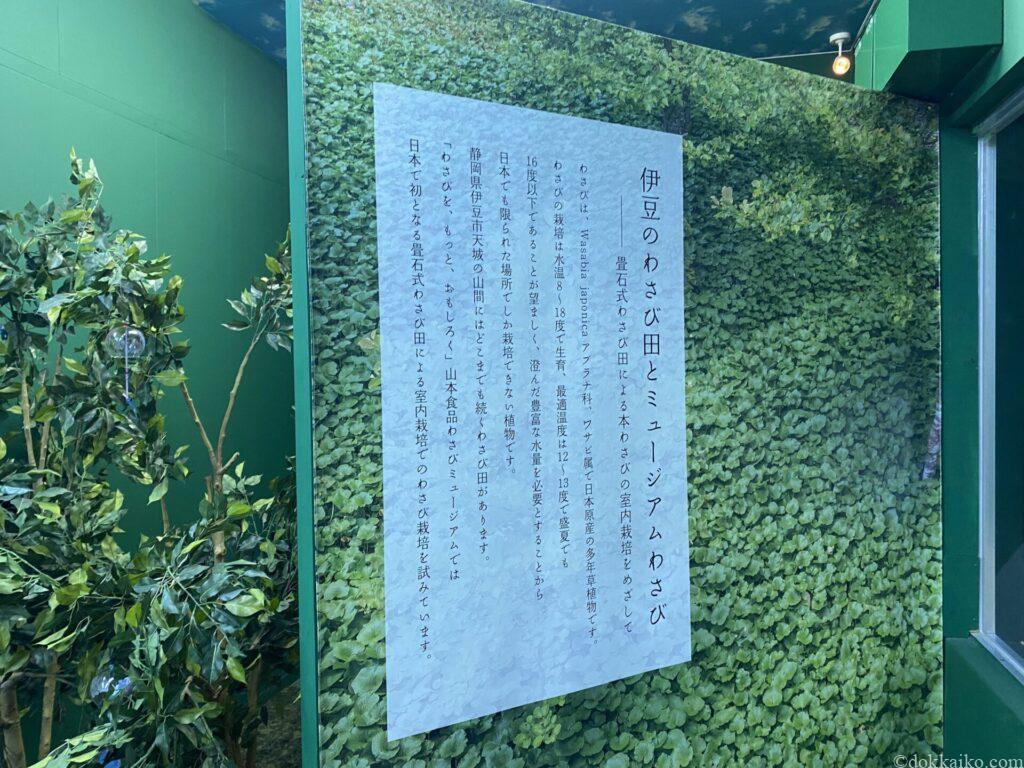 伊豆のわさび田とミュージアムわさび
―― 畳石式わさび田による本わさびの室内栽培をめざして
わさびは、Wasabia japonica アブラナ科、ワサビ属で日本原産の多年草植物です。
わさびの栽培は水温8～18度で生育、最適温度は12～13度で盛夏でも
16度以下であることが望ましく、澄んだ豊富な水量を必要とすることから
日本でも限られた場所でしか栽培できない植物です。
静岡県伊豆市天城の山間にはどこまでも続くわさび田があります。
「わさびを、もっと、おもしろく」山本食品わさびミュージアムでは
日本で初となる畳石式わさび田による室内栽培でのわさび栽培を試みています。
©dokkaiko.com